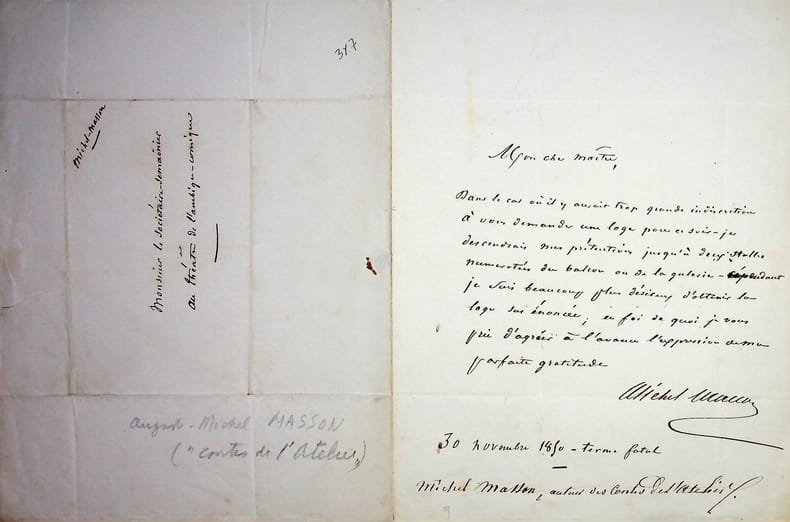 347
Michel-Masson
Monsieur le sociétaire-semainier
au théâtre de l'ambigu-comique
august-Michel MASSON
("contes de l'Atelier")
Mon cher maître,
Dans le cas où il y aurait trop grande indiscrétion
à vous demander une loge pour ce soir - je
descendrais mes prétentions jusqu'à deux stalles
numérotées du balcon ou de la galerie - cependant
je suis beaucoup plus désireux d'obtenir la
loge sus énoncée; en foi de quoi je vous
prie d'agréer à l'avance l'expression de ma
parfaite gratitude
Michel Masson
30 novembre 1850 - terme fatal
Michel Masson, auteur des Contes de l'Atelier